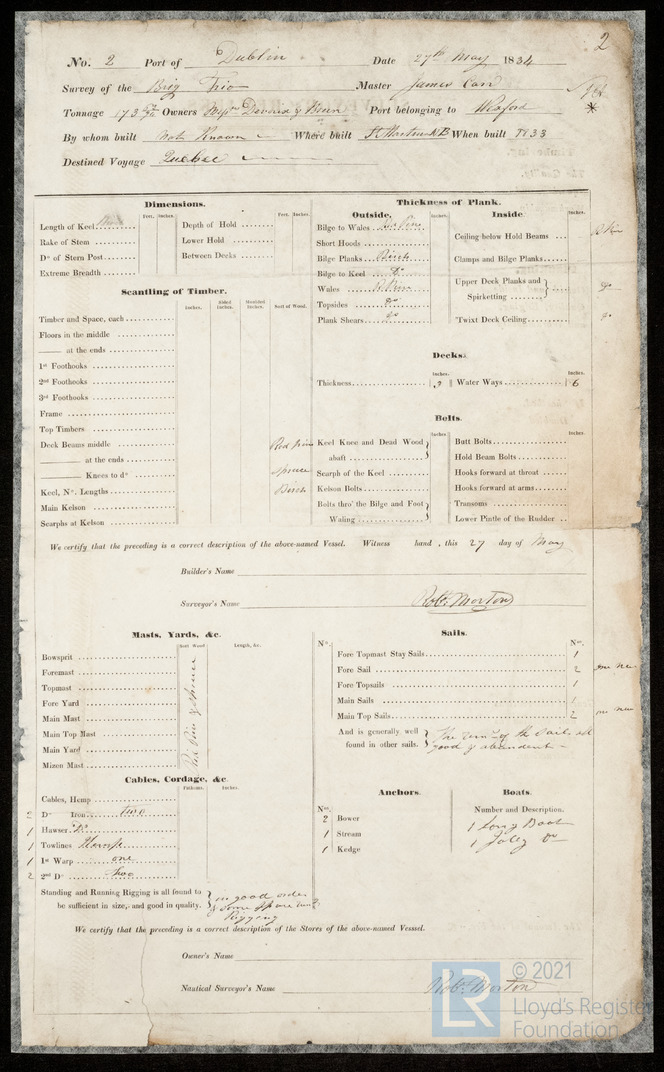 2
No. 2 Port of Dublin Date 27th May 1834
Survey of the Brig Trio Master James Carr
Tonnage 173 Owners Port belonging to Wexford *
By whom built Not Known Where built St Martins NB When built 1833
Destined Voyage Quebec
Dimensions.
Feet. Inches. Feet. Inches.
Length of Keel
Depth of Hold
Rake of Stem
Lower Hold
Do of Stern Post
Between Decks
Extreme Breadth
Scantling of Timber.
Inches. Sided Inches. Moulded Inches. Sort of Wood.
Timber and Space, each
Floors in the middle
at the ends
1st Foothooks
2nd Foothooks
3rd Foothooks
Frame
Top Timbers
Deck Beams middle Red Pine
at the ends Spruce
Knees to do Birch
Keel, No. Lengths
Main Kelson
Scarphs at Kelson
Thickness of Plank.
Outside. Inches.
Bilge to Wales
Short Hoods
Bilge Planks Birch
Bilge to Keel Do
Wales P. Pine
Topsides do
Plank Shears do
Inside Inches.
Ceiling below Hold Beams P Pine
Clamps and Bilge Planks
Upper Deck Planks and Spirketting do
'Twixt Deck Ceiling do
Decks.
Inches. Inches.
Thickness 3 Water Ways 6
Bolts.
Inches. Inches.
Keel Knee and Dead Wood abaft
Scarph of the Keel
Kelson Bolts
Bolts thro' the Bilge and Foot Waling
Butt Bolts
Hold Beam Bolts
Hooks forward at throat
Hooks forward at arms
Transoms
Lower Pintle of the Rudder
We certify that the preceding is a correct description of the above-named Vessel. Witness hand, this 27 day of May
Builder's Name
Surveyor's Name Robt. Morton
Masts, Yards, &c.
Sort Wood Length, &c.
Bowsprit
Foremast
Topmast
Fore Yard
Main Mast
Main Top Mast
Main Yard
Mizen Mast
Red Pine & Spruce
Cables, Cordage, &c.
Fathoms. Inches.
Cables, Hemp
2 Do Iron two
1 Hawser Do
1 Towlines Hemp
1 1st Warp one
2 2nd Do two
Standing and Running Rigging is all found to be sufficient in size, and good in quality.
in good order
& some spare
Rigging
Sails.
No. Nos.
Fore Topmast Stay Sails 1
Fore Sail 2 one new
Fore Topsails 1
Main Sails 1
Main Top Sails 2 one new
And is generally well found in other sails.
The of the Sails all
good & abundant
Anchors.
Nos.
2 Bower
1 Stream
1 Kedge
Boats.
Number and Description.
1 Long Boat
1 Jolly Do
We certify that the preceding is a correct description of the Stores of the above-named Vessel.
Owner's Name
Nautical Surveyor's Name Robt. Morton
LR
© 2021
Lloyd's Register
Foundation